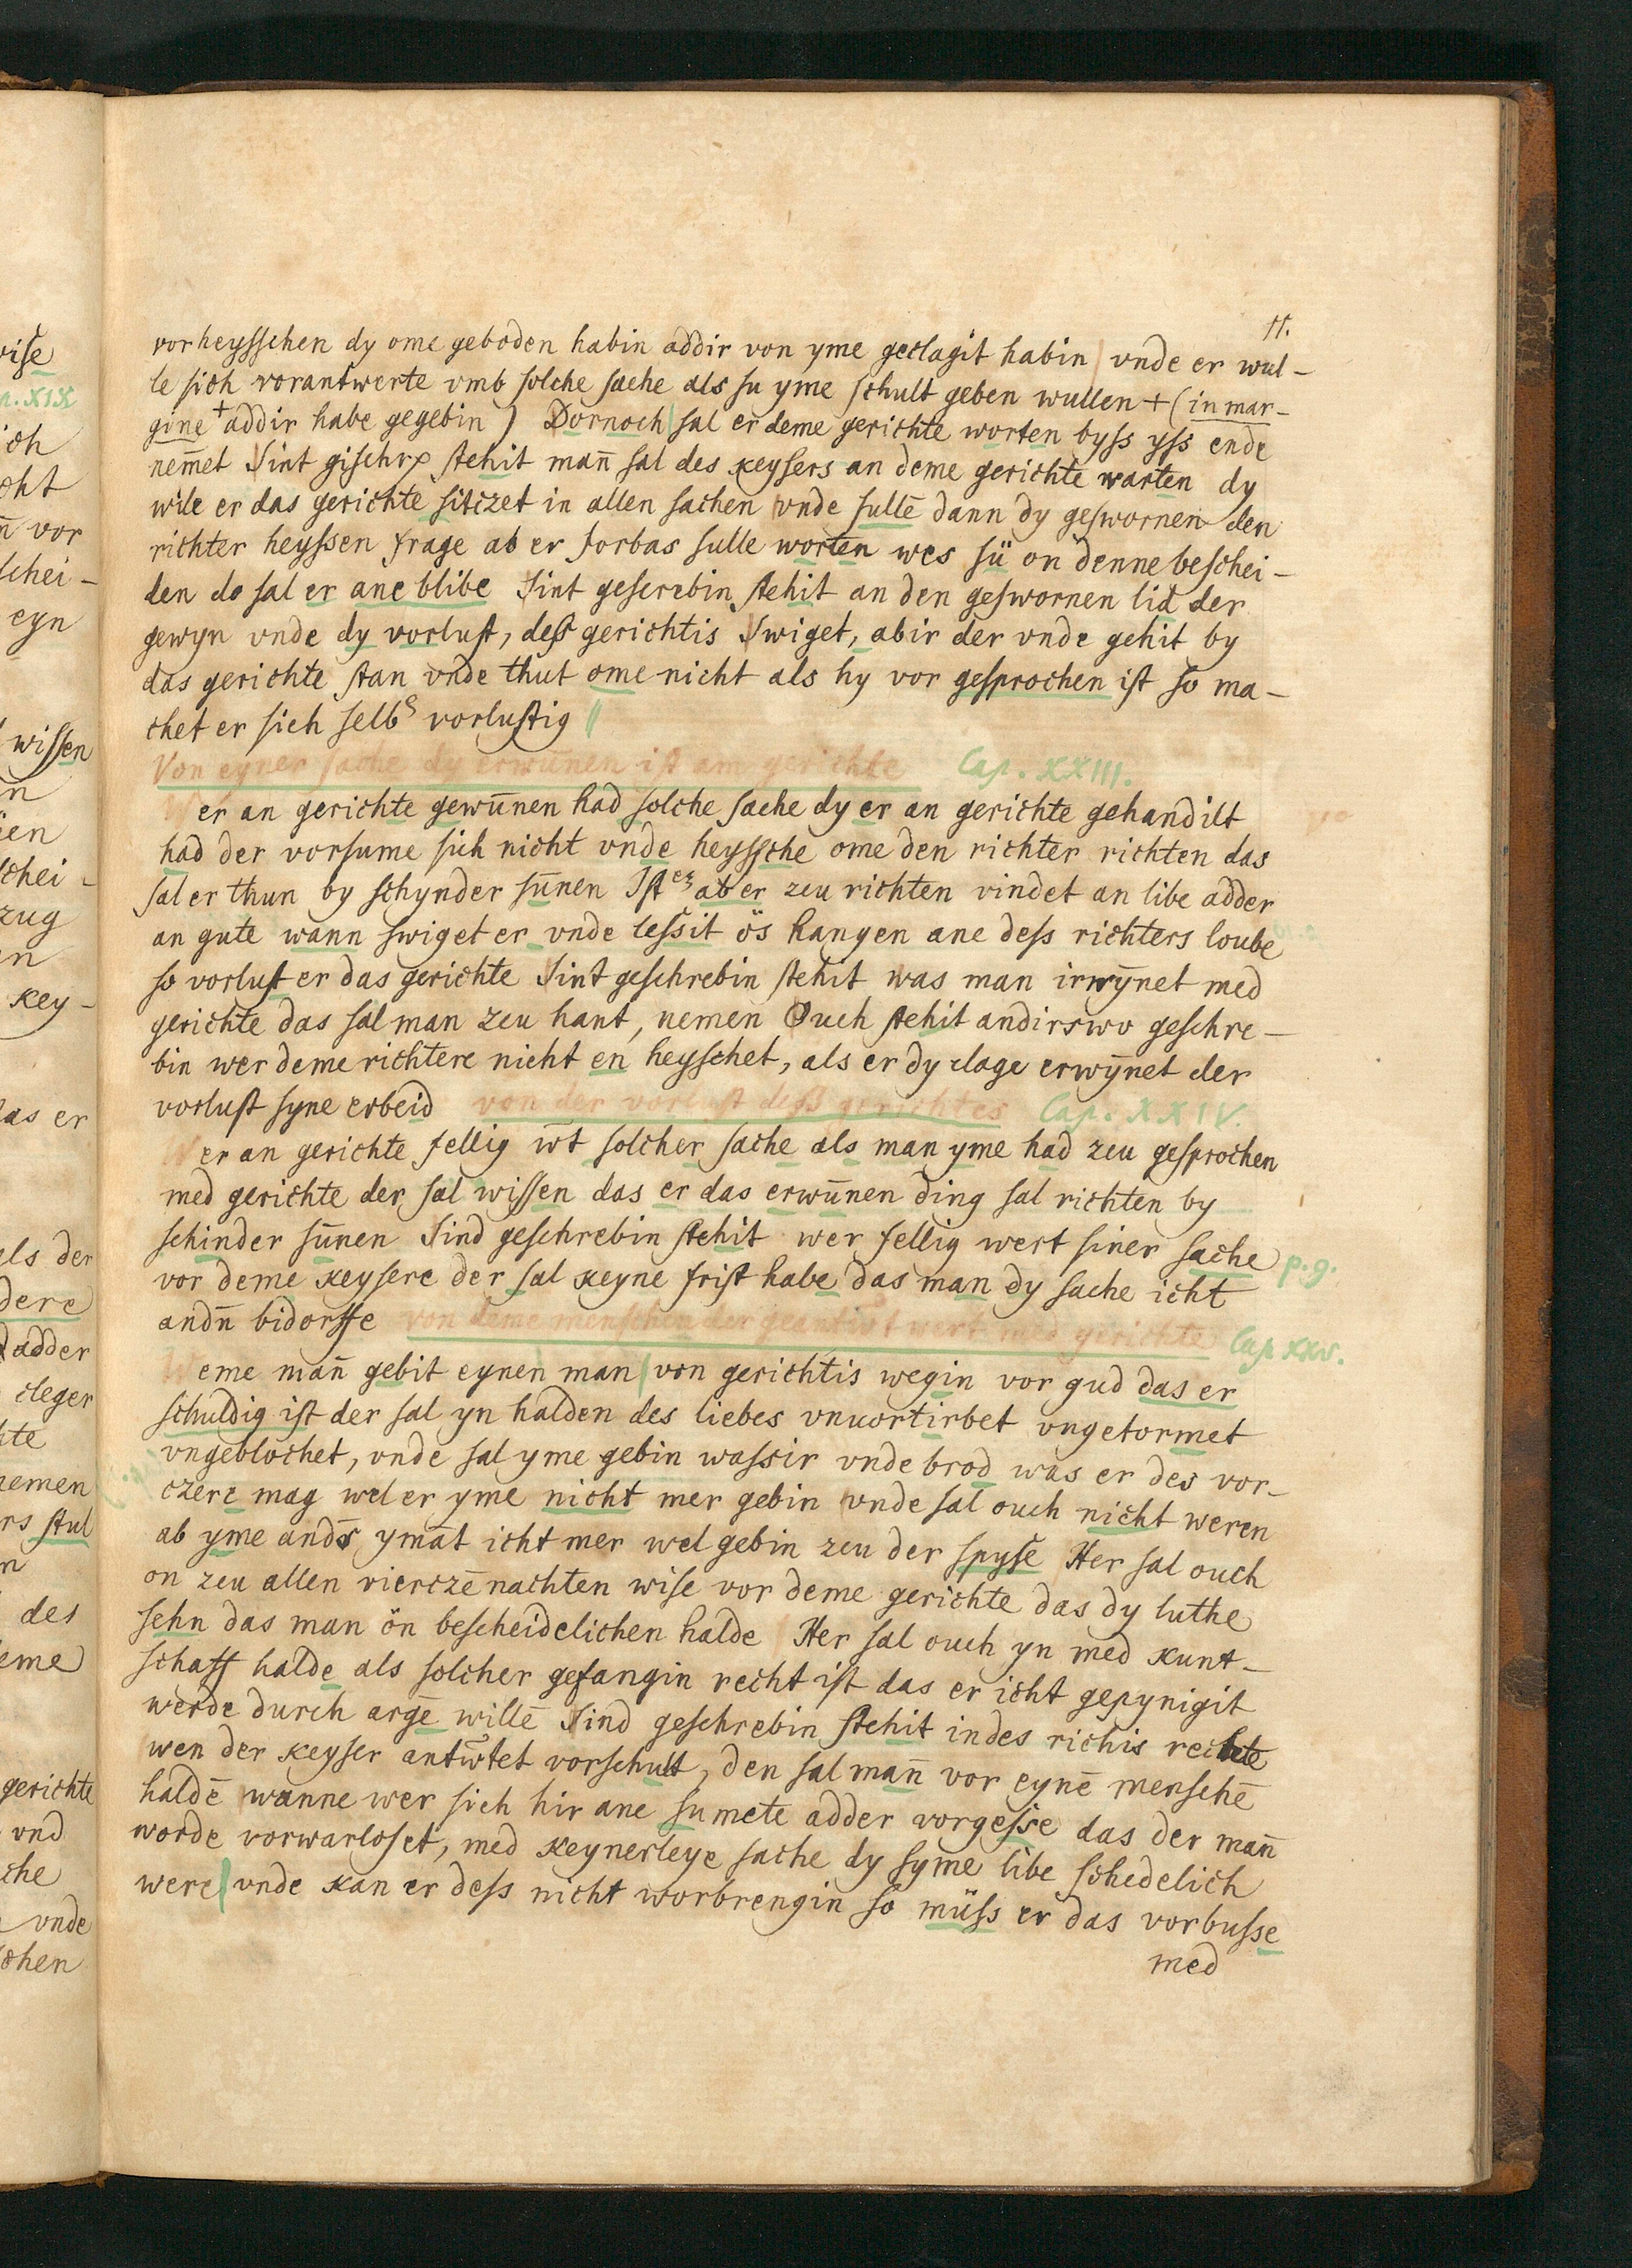 11.
vorheysschen dy ome geboden habin addir von yme geclagit habin vnde er wul-
le sich vorantwerte vmb solche sache als su yme schult geben wullen + (in mar-
gine + addir habe gegebin) Dornoch sal er deme gerichte worten byss yss ende
nem̄et Sint gischr stehit man̄ sal des keysers an deme gerichte warten dy
wile er das gerichte sitczet in allen sachen vnde sullē dann dy geswornen den
richter heyssen frage ab er forbas sulle worten wes sü on denne beschei-
den do sal er ane blibe Sint gescrebin stehit an den geswornen lid der
gewyn vnde dy vorlust, dess gerichtis Swiget, abir der vnde gehit by
das gerichte stan vnde thut ome nicht als hy vor gesprochen ist so ma-
chet er sich selbs vorlustig
Von eyner sache dy erwūnen ist am gerichte Cap. XXIII.
Wer an gerichte gewūnen had solche sache dy er an gerichte gehandilt
had der vorsume sich nicht vnde heyssche ome den richter richten das
sal er thun by schynder sūnen Ist ez ab er zcu richten vindet an libe adder
an gute wann swiget er vnde lessit ös hangen ane dess richters loube
so vorlust er das gerichte Sint geschrebin stehit was man irwȳnet med
gerichte das sal man zcu hant, nemen Ouch stehit andirswo geschre-
bin wer deme richtere nicht en heyschet, als er dy clage erwȳnet der
vorlust syne erbeid von der vorlust dess gerichtes Cap. XXIV.
Wer an gerichte fellig w̄t solcher sache als man yme had zcu gesprochen
med gerichte der sal wissen das er das erwūnen ding sal richten by
schinder sūnen Sind geschrebin stehit wer fellig wert siner sache p. 9.
vor deme keysere der sal keyne frist habe das man dy sache icht
andn̄ bidorffe von deme menschen der geantwert wert med gerichte Cap XXV.
Weme man̄ gebit eynen man von gerichtis wegin vor gud das er
schuldig ist der sal yn halden des liebes vnuortirbet vngetormet
vngeblochet, vnde sal yme gebin wassir vnde brod was er des vor-
czere mag wel er yme nicht mer gebin vnde sal ouch nicht weren
ab yme andˢ ymāt icht mer wel gebin zcu der spyse Her sal ouch
on zcu allen vierczē nachten wise vor deme gerichte das dy luthe
sehn das man ön bescheidelichen halde Her sal ouch yn med kunt-
schaff halde als solcher gefangin recht ist das er icht gepynigit
werde durch argē willē Sind geschrebin stehit in des richis rechte
wen der keyser antw̄tet vorschult, den sal man̄ vor eynē menschē
haldē wanne wer sich hir ane sumete adder vorgesse das der man̄
worde vorwarloset, med keynerleye sache dy syme libe schedelich
were vnde kan er dess nicht worbrengin so müss er das vorbusse
med